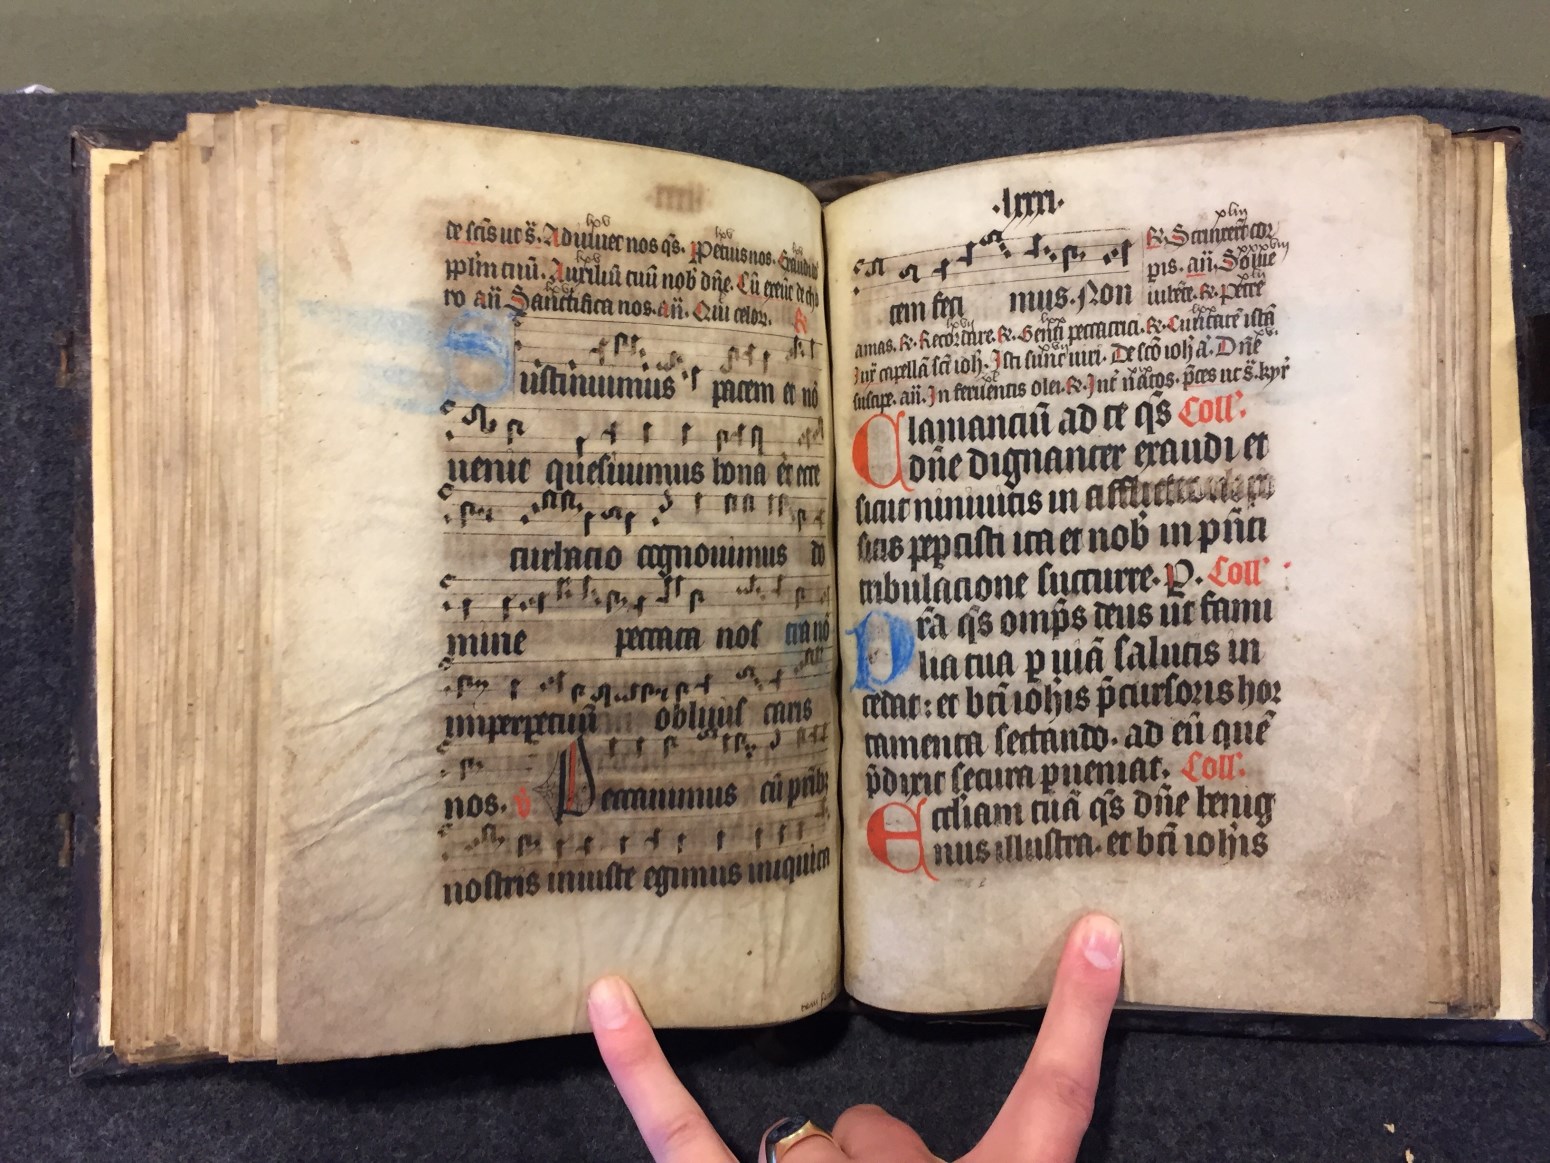 de scīs ut s̄. Adiuuet nos qs̄. Petrus nos. Exaudi
pplm tuū. Auxiliū tuū nob dñe. Cū exeūt de
ro añ Sanctifica nos. añ. Qui celor. R
Sustinuimus pacem et nō
uenit quesiuimus bona et ecce
turbacio cognouimus do
mine peccata nos tra nō
imperpetuū obliuis caris
nos. V Peccauimus cū prīb
nostris iniuste egimus iniquita
.liiii.
tem feci mus. Non
xliii
R. Scinteret cor
pis. añ. Soluite
R. Petre
amas. R. Recordare. R. Genti peccatrici. R. Ciuitatē istā
Iux capellā sci ioh. Isti sunt uiri. De scō ioh ā. Dñe
suscipe. añ. In feruentis olei. R. Int natos. pces ut s̄. kyr
Clamanciū ad te qs̄ Coll'.
dñe dignanter exaudi et
sicut niniuitis in afflictione
sitis pepcisti ita et nob in pñti
tribulacione succurre. P. Coll'
Pra qs̄ omps deus ut fami
lia tua p uiā salutis in
cedat: et bti iohis pcursoris hor
tamenta sectando. ad eū quē
pdixit secura pueniat. Coll'.
Ecclīam tuā qs̄ dñe benig
nus illustra. et bti iohis